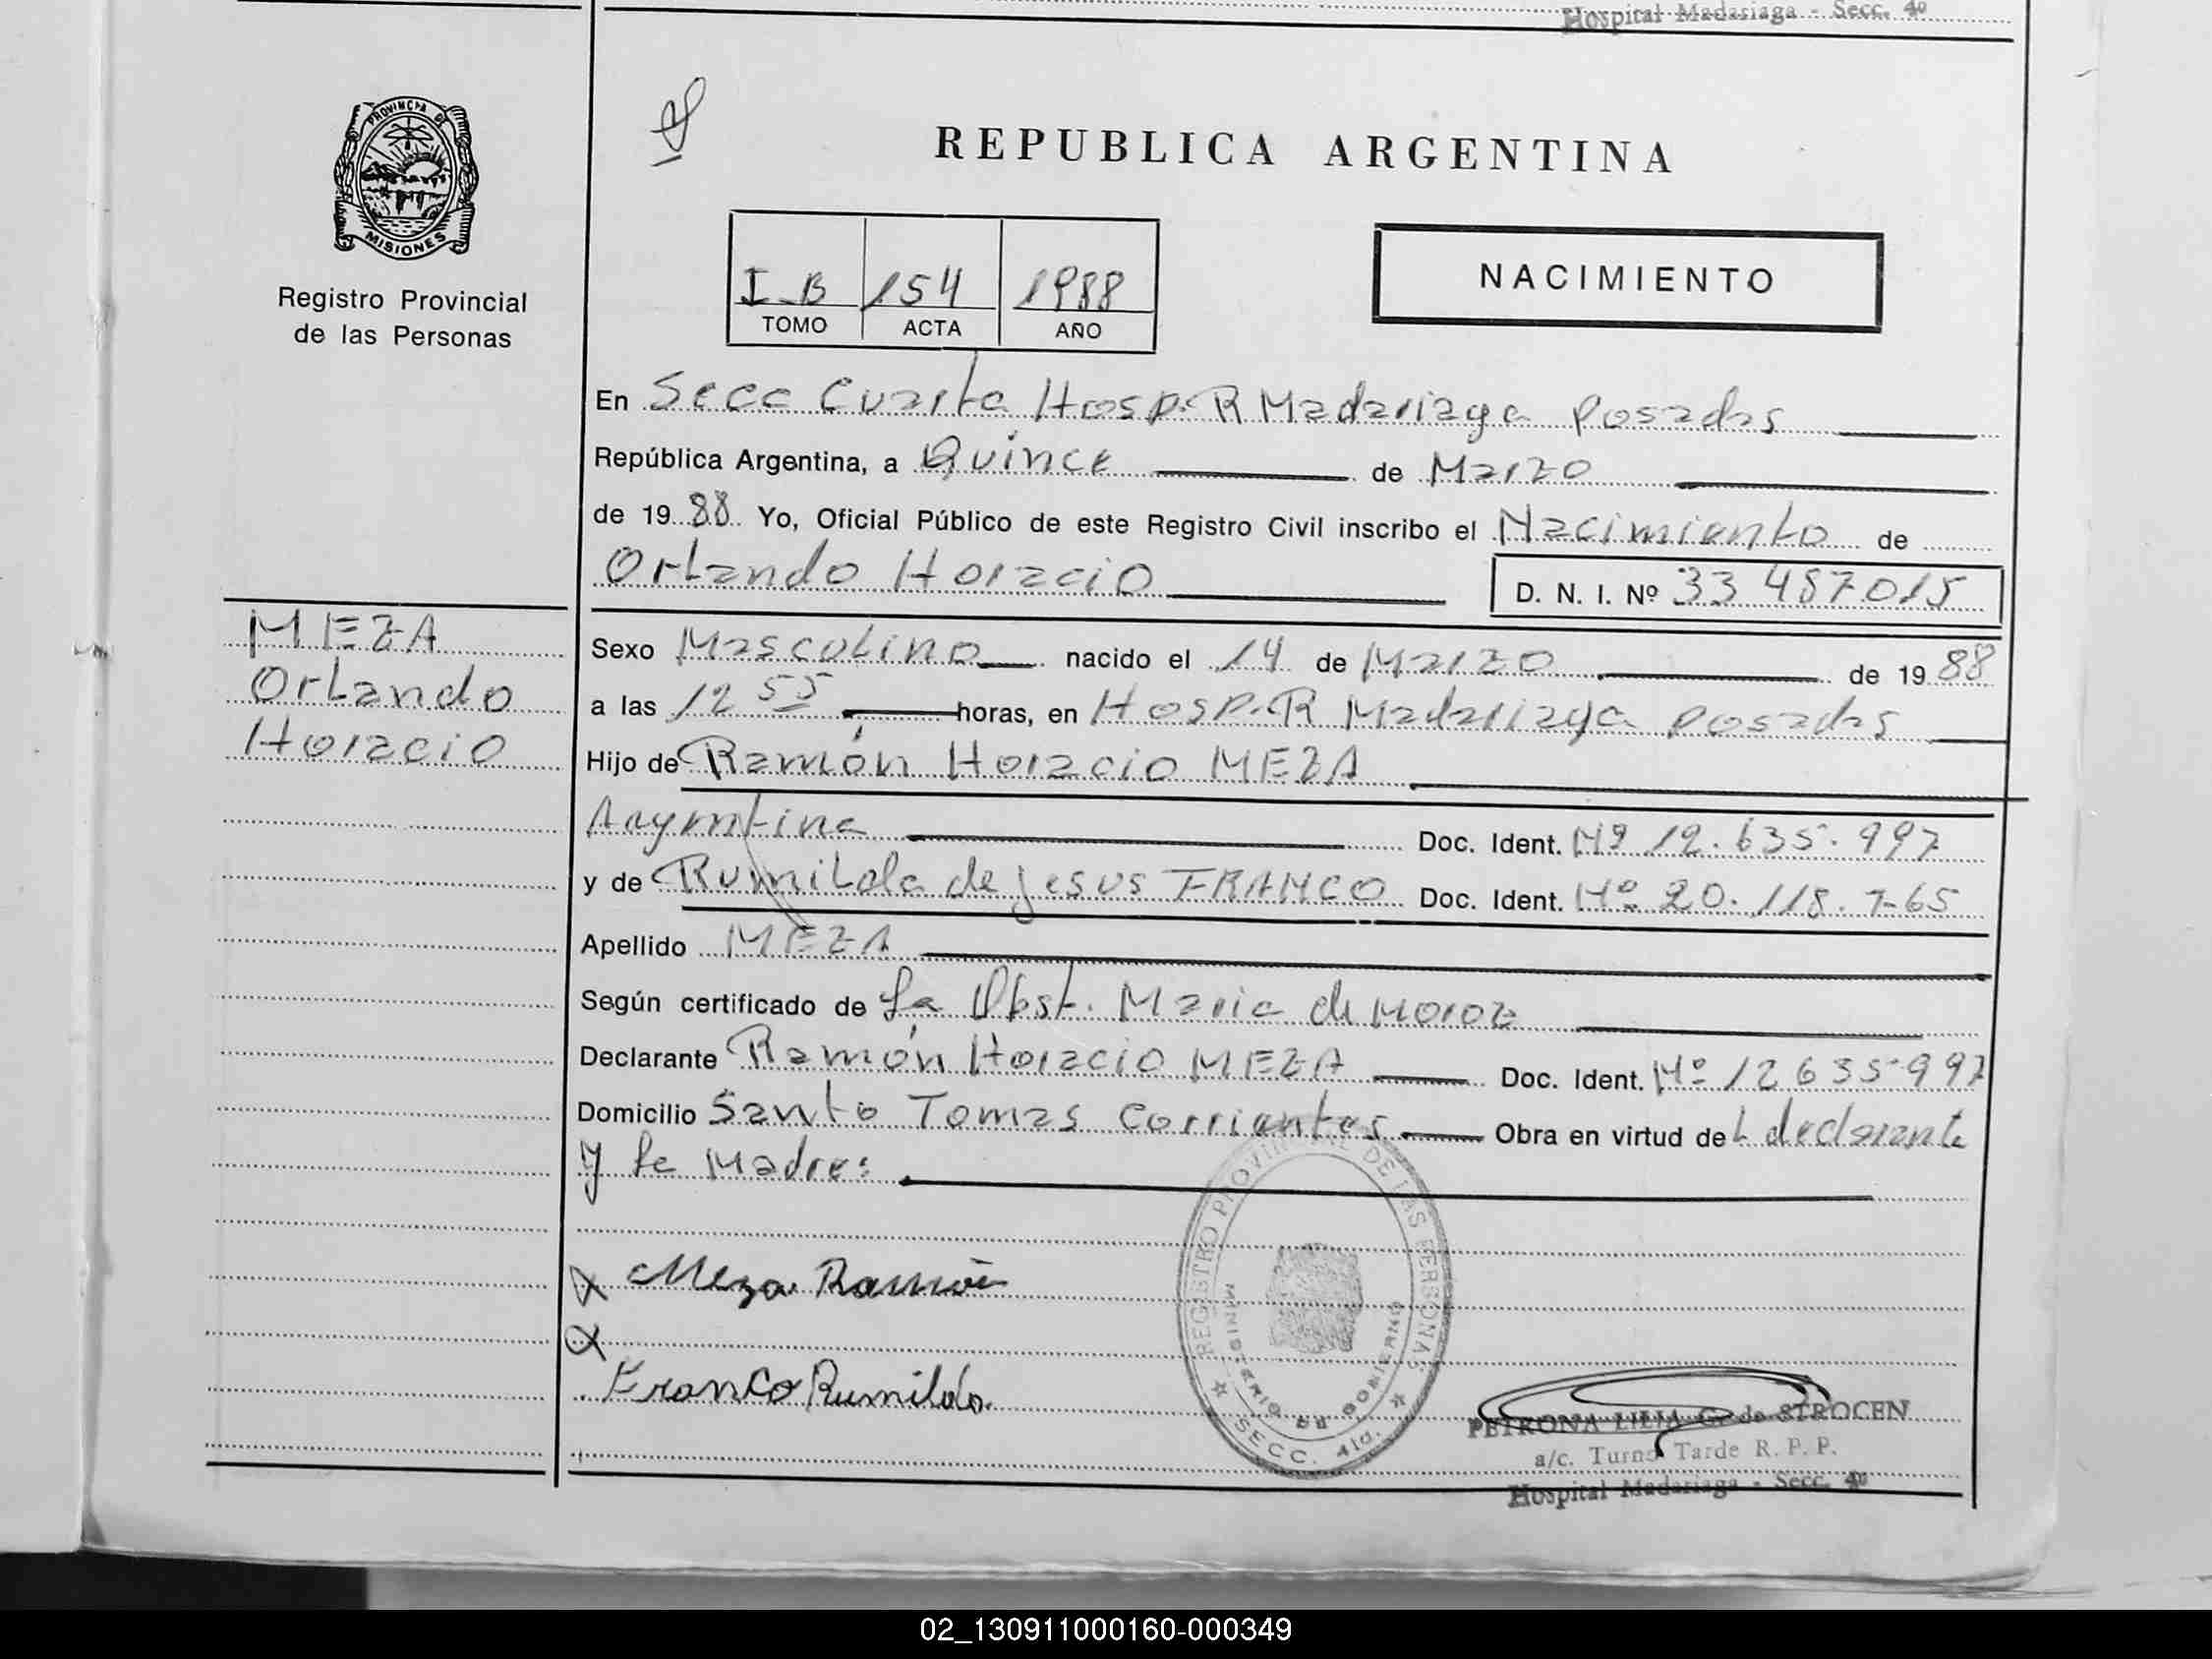 Hospital Madariaga - Secc. 4º
PROVINCIA DE
MISIONES
Registro Provincial
de las Personas
REPUBLICA ARGENTINA
I-B 154 1988
TOMO ACTA AÑO
NACIMIENTO
En Secc Cuarta Hosp. R Madariaga Posadas
República Argentina, a Quince de Marzo
de 1988 Yo, Oficial Público de este Registro Civil inscribo el Nacimiento de
Orlando Horacio D. N. I. Nº 33 487015
MEZA
Orlando
Horacio
Sexo Masculino nacido el 14 de Marzo de 1988
a las 12 55 horas, en Hosp. R Madariaga Posadas
Hijo de Ramón Horacio MEZA
Argentina Doc. Ident. Nº 12.635.997
y de Rumilda de Jesus FRANCO Doc. Ident. Nº 20.118.765
Apellido MEZA
Según certificado de la Obst. Maria de Moroz
Declarante Ramón Horacio MEZA Doc. Ident. Nº 12635997
Domicilio Santo Tomas Corrientes Obra en virtud del declarante
y la Madre:
Meza Ramón
Franco Rumilda
REGISTRO PROVINCIAL DE LAS PERSONAS
MINISTERIO DE GOBIERNO
SECC. 4ta.
PETRONA LILIA G. de STROCEN
a/c. Turno Tarde R. P. P.
Hospital Madariaga - Secc. 4º
02_130911000160-000349